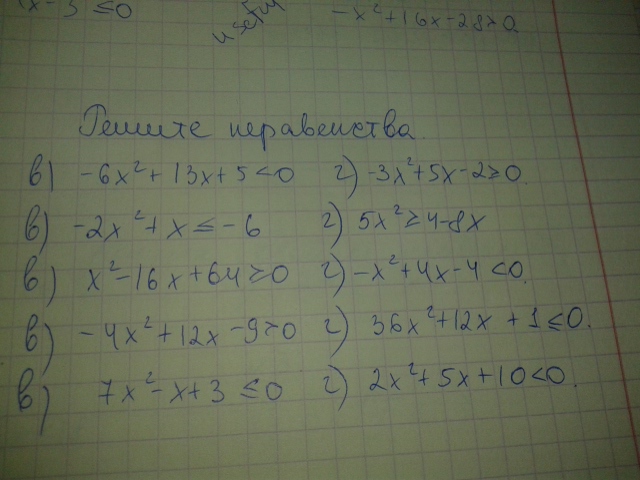 x-3 ≤0
-x²+16x-28>0
Решите неравенства
в) -6x²+13x+5<0 г) -3x²+5x-2≥0
в) -2x²+x≤-6 г) 5x²≥4-8x
в) x²-16x+64≥0 г) -x²+4x-4<0.
в) -4x²+12x-9>0 г) 36x²+12x+1≤0.
в) 7x²-x+3≤0 г) 2x²+5x+10<0.